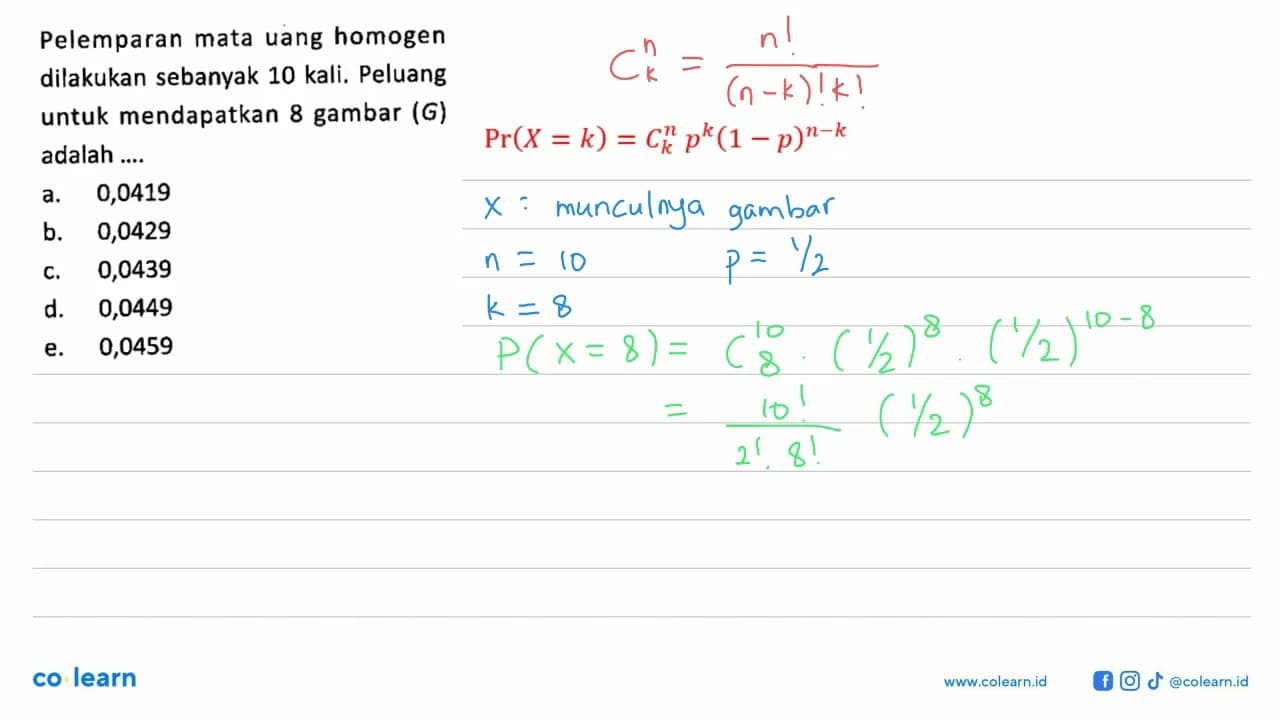 Pelemparan mata uang homogen
dilakukan sebanyak 10 kali. Peluang
untuk mendapatkan 8 gambar (G)
adalah ....
a. 0,0419
b. 0,0429
c. 0,0439
d. 0,0449
e. 0,0459
C^n_k = n! / (n-k)! k!
Pr(X = k) = C^n_k p^k (1 − p)^{n−k}
X : munculnya gambar
n = 10 p = 1/2
k = 8
P(X = 8) = C^10_8 . (1/2)^8 . (1/2)^{10-8}
= 10! / 2! . 8! (1/2)^8
co learn
www.colearn.id @colearn.id